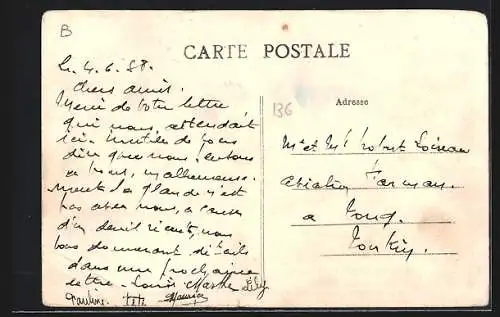 B
CARTE POSTALE
Le 4.6.38.
Chers amis.
Merci de votre lettre
qui nous attendait
ici. Inutile de vous
dire que nous
malheureuse-
ment la
pas avec nous, a cause
d'un deuil récent, nous
vous donneront détails
dans une prochaine
lettre. Louis Marthe Lily
Pauline. Titi Maurice
136
Adresse
Mr et Me Robert Loiseau
Aviation Farman.
a Tong.
Tonkin.